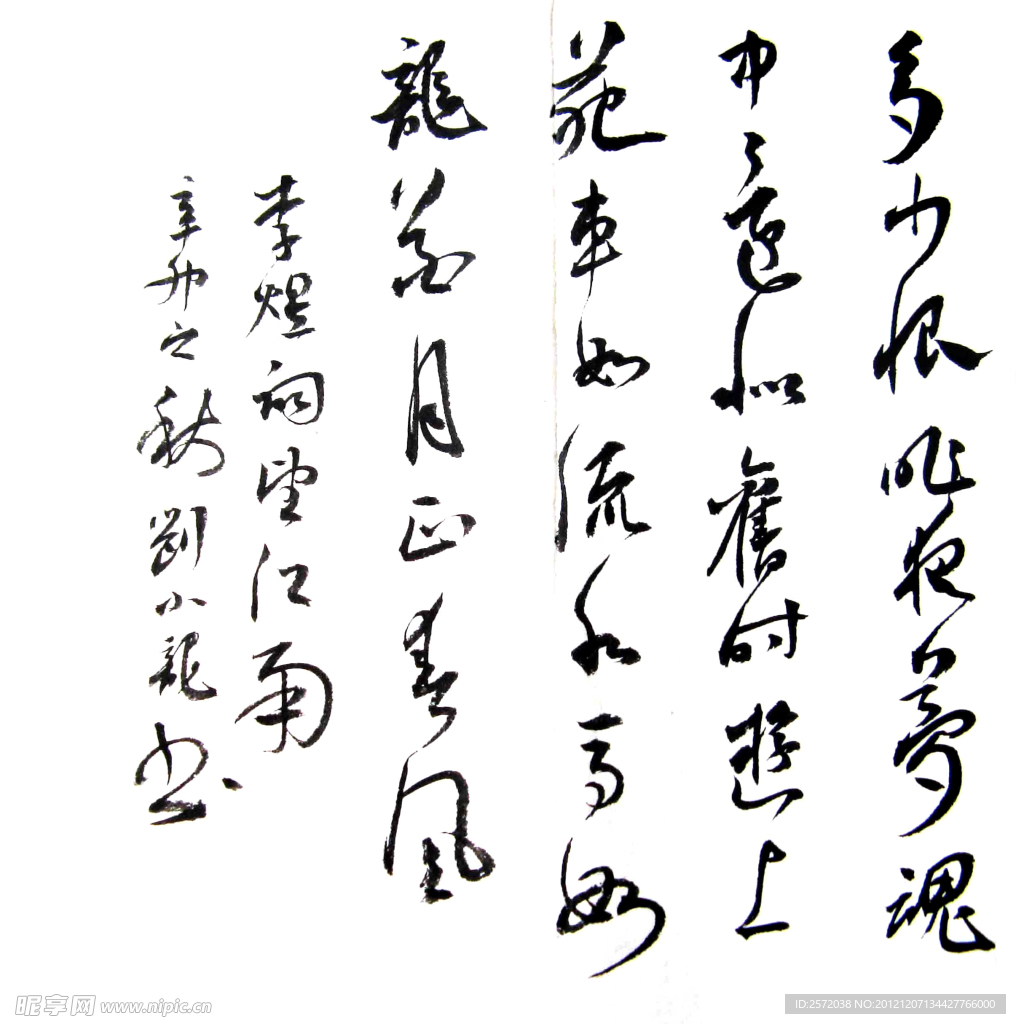 多少恨昨夜夢魂
中〻還似舊時遊上
苑車如流水馬如
龍花月正春風
李煜詞望江南
辛卯之秋劉小龍書
昵享网 www.nipic.cn
ID:2572038 NO:20121207134427766000